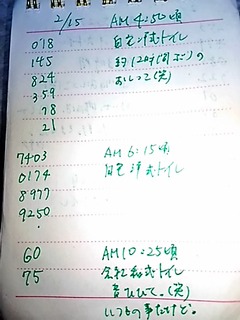 2/15 AM 4:50頃
018 自宅洋式トイレ
145 約12時間ぶりの
824 おしっこ(笑)
359
78
21
7403 AM 6:15頃
0174 自宅洋式トイレ
8977
9250
60 AM 10:25頃
75 会社和式トイレ
音ひびく。(笑)
いつもの事だけど。